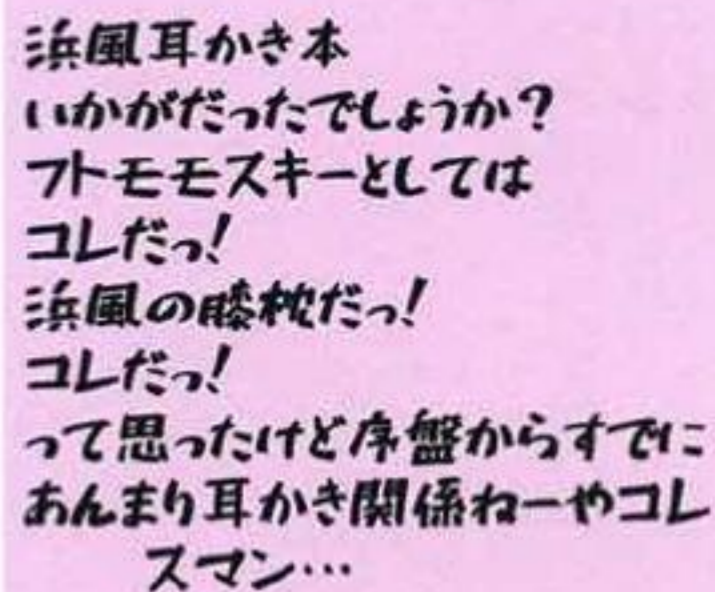 浜風耳かき本
いかがだったでしょうか?
フトモモスキーとしては
コレだっ!
浜風の膝枕だっ!
コレだっ!
って思ったけど序盤からすでに
あんまり耳かき関係ねーやコレ
スマン…